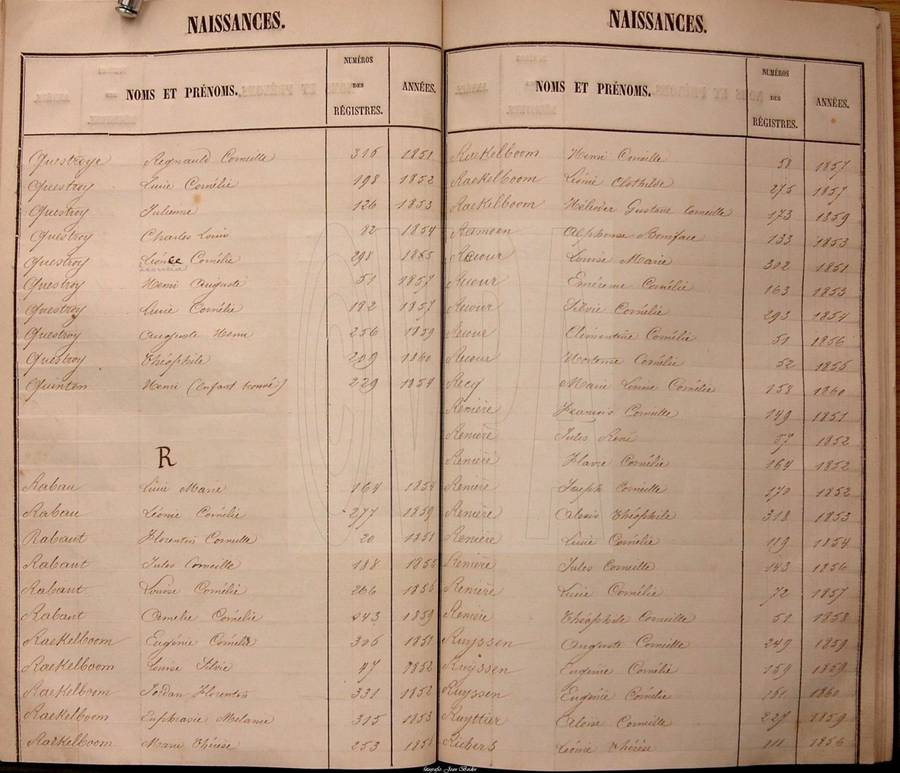 NAISSANCES.
NOMS ET PRÉNOMS. NUMÉROS DES RÉGISTRES. ANNÉES.
Questroye Regnauld Corneille 316 1851
Questroy Lucie Cornélie 198 1852
Questroy Julienne 126 1853
Questroy Charles Louis 82 1854
Questroy Cornélie 298 1855
Questroy Henri Auguste 51 1857
Questroy Lucie Cornélie 192 1857
Questroy Auguste Henri 256 1859
Questroy Théophile 209 1860
Quinten Henri (Enfant trouvé) 229 1854
R
Rabau Marie 164 1854
Rabau Léonie Cornélie 277 1859
Rabaut Florentin Corneille 20 1851
Rabaut Jules Corneille 188 1855
Rabaut Louise Cornélie 1856
Rabaut Camelie Cornélie 1859
Raekelboom Eugénie 306 1851
Raekelboom Louise Silvie 47 1852
Raekelboom Jordan Florentin 331 1852
Raekelboom Euphrasie Melanie 315 1853
Raekelboom Marie Thérèse 253
NAISSANCES.
NOMS ET PRÉNOMS. NUMÉROS DES RÉGISTRES. ANNÉES.
Raekelboom Henri Camille 58 1857
Raekelboom Léonie Clothilde 275 1857
Raekelboom Gustave Corneille 173 1859
Alphonse Boniface 133 1853
Louise Marie 302 1851
Cornélie 163 1853
Silvie Cornélie 293 1854
Clémentine Cornélie 51 1856
Hortense Cornélie 52 1855
Recq Marie Louise Cornélie 158 1860
Renière François Corneille 149 1851
Renière Jules René 87 1852
Renière Flavie Cornélie 164 1852
Renière Joseph Corneille 170 1852
Renière Alouis Théophile 318 1853
Renière Lucie Cornélie 119 1854
Renière Jules Corneille 143 1856
Renière Lucie Cornélie 72 1857
Renière Théophile Corneille 51 1858
Ruyssen Auguste Corneille 249 1859
Ruyssen Eugénie Cornélie 159 1859
Ruyssen Eugénie Cornélie 151 1860
Ruyttier Corneille 227 1859
Léonie Thérèse 111 1856